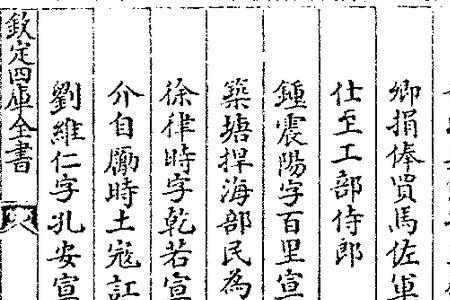 卿捐俸買馬佐軍
仕至工部侍郎
鍾震陽字百里宣
築塘捍海部民為
徐律時字乾若宣
介自勵時土寇訌
劉維仁字孔安宣
欽定四庫全書